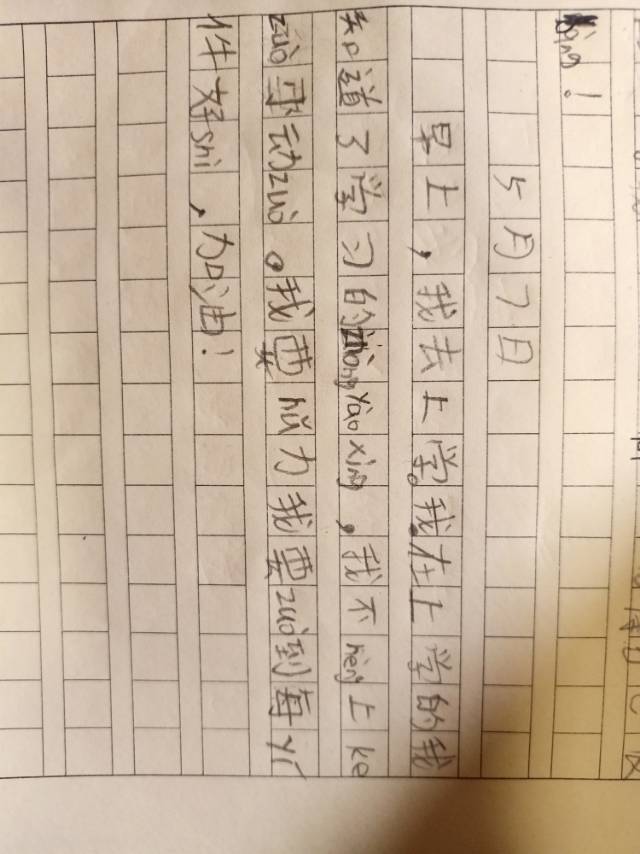 5月7日
早上，我去上学。我在上学的我
知道了学习的zhòngyàoxìng，我不néng上ke
zuò动zuò。我要nǔ力我要zuò到每yí
件好shi，加油！